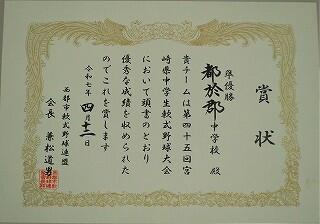 賞状
準優勝
都於郡中学校 殿
貴チームは第四十五回宮
崎県中学生軟式野球大会
において頭書のとおり
優秀な成績を収められた
のでこれを賞します
令和七年 四月十二日
西都市軟式野球連盟
会長 兼松道男